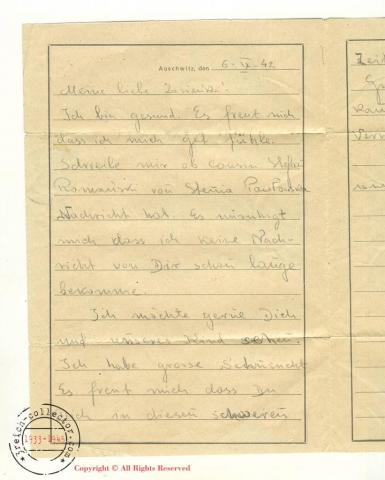 Auschwitz, den 6-IX-42
Meine liebe
Ich bin gesund. Es freut mich
dass ich mich gut fühle.
Schreibe mir ob cousin Stefan
Romański von Stenia Pawłowska
Nachricht hat. Es unruhigt
mich dass ich keine Nach-
richt von Dir schon lange
bekomme.
Ich möchte gerne Dich
und unseres Kind sehen.
Ich habe grosse Sehnsucht
Es freut mich dass Du
in diesen schweren
Zeit
3reich-collector.com
1933-1945
Copyright © All Rights Reserved